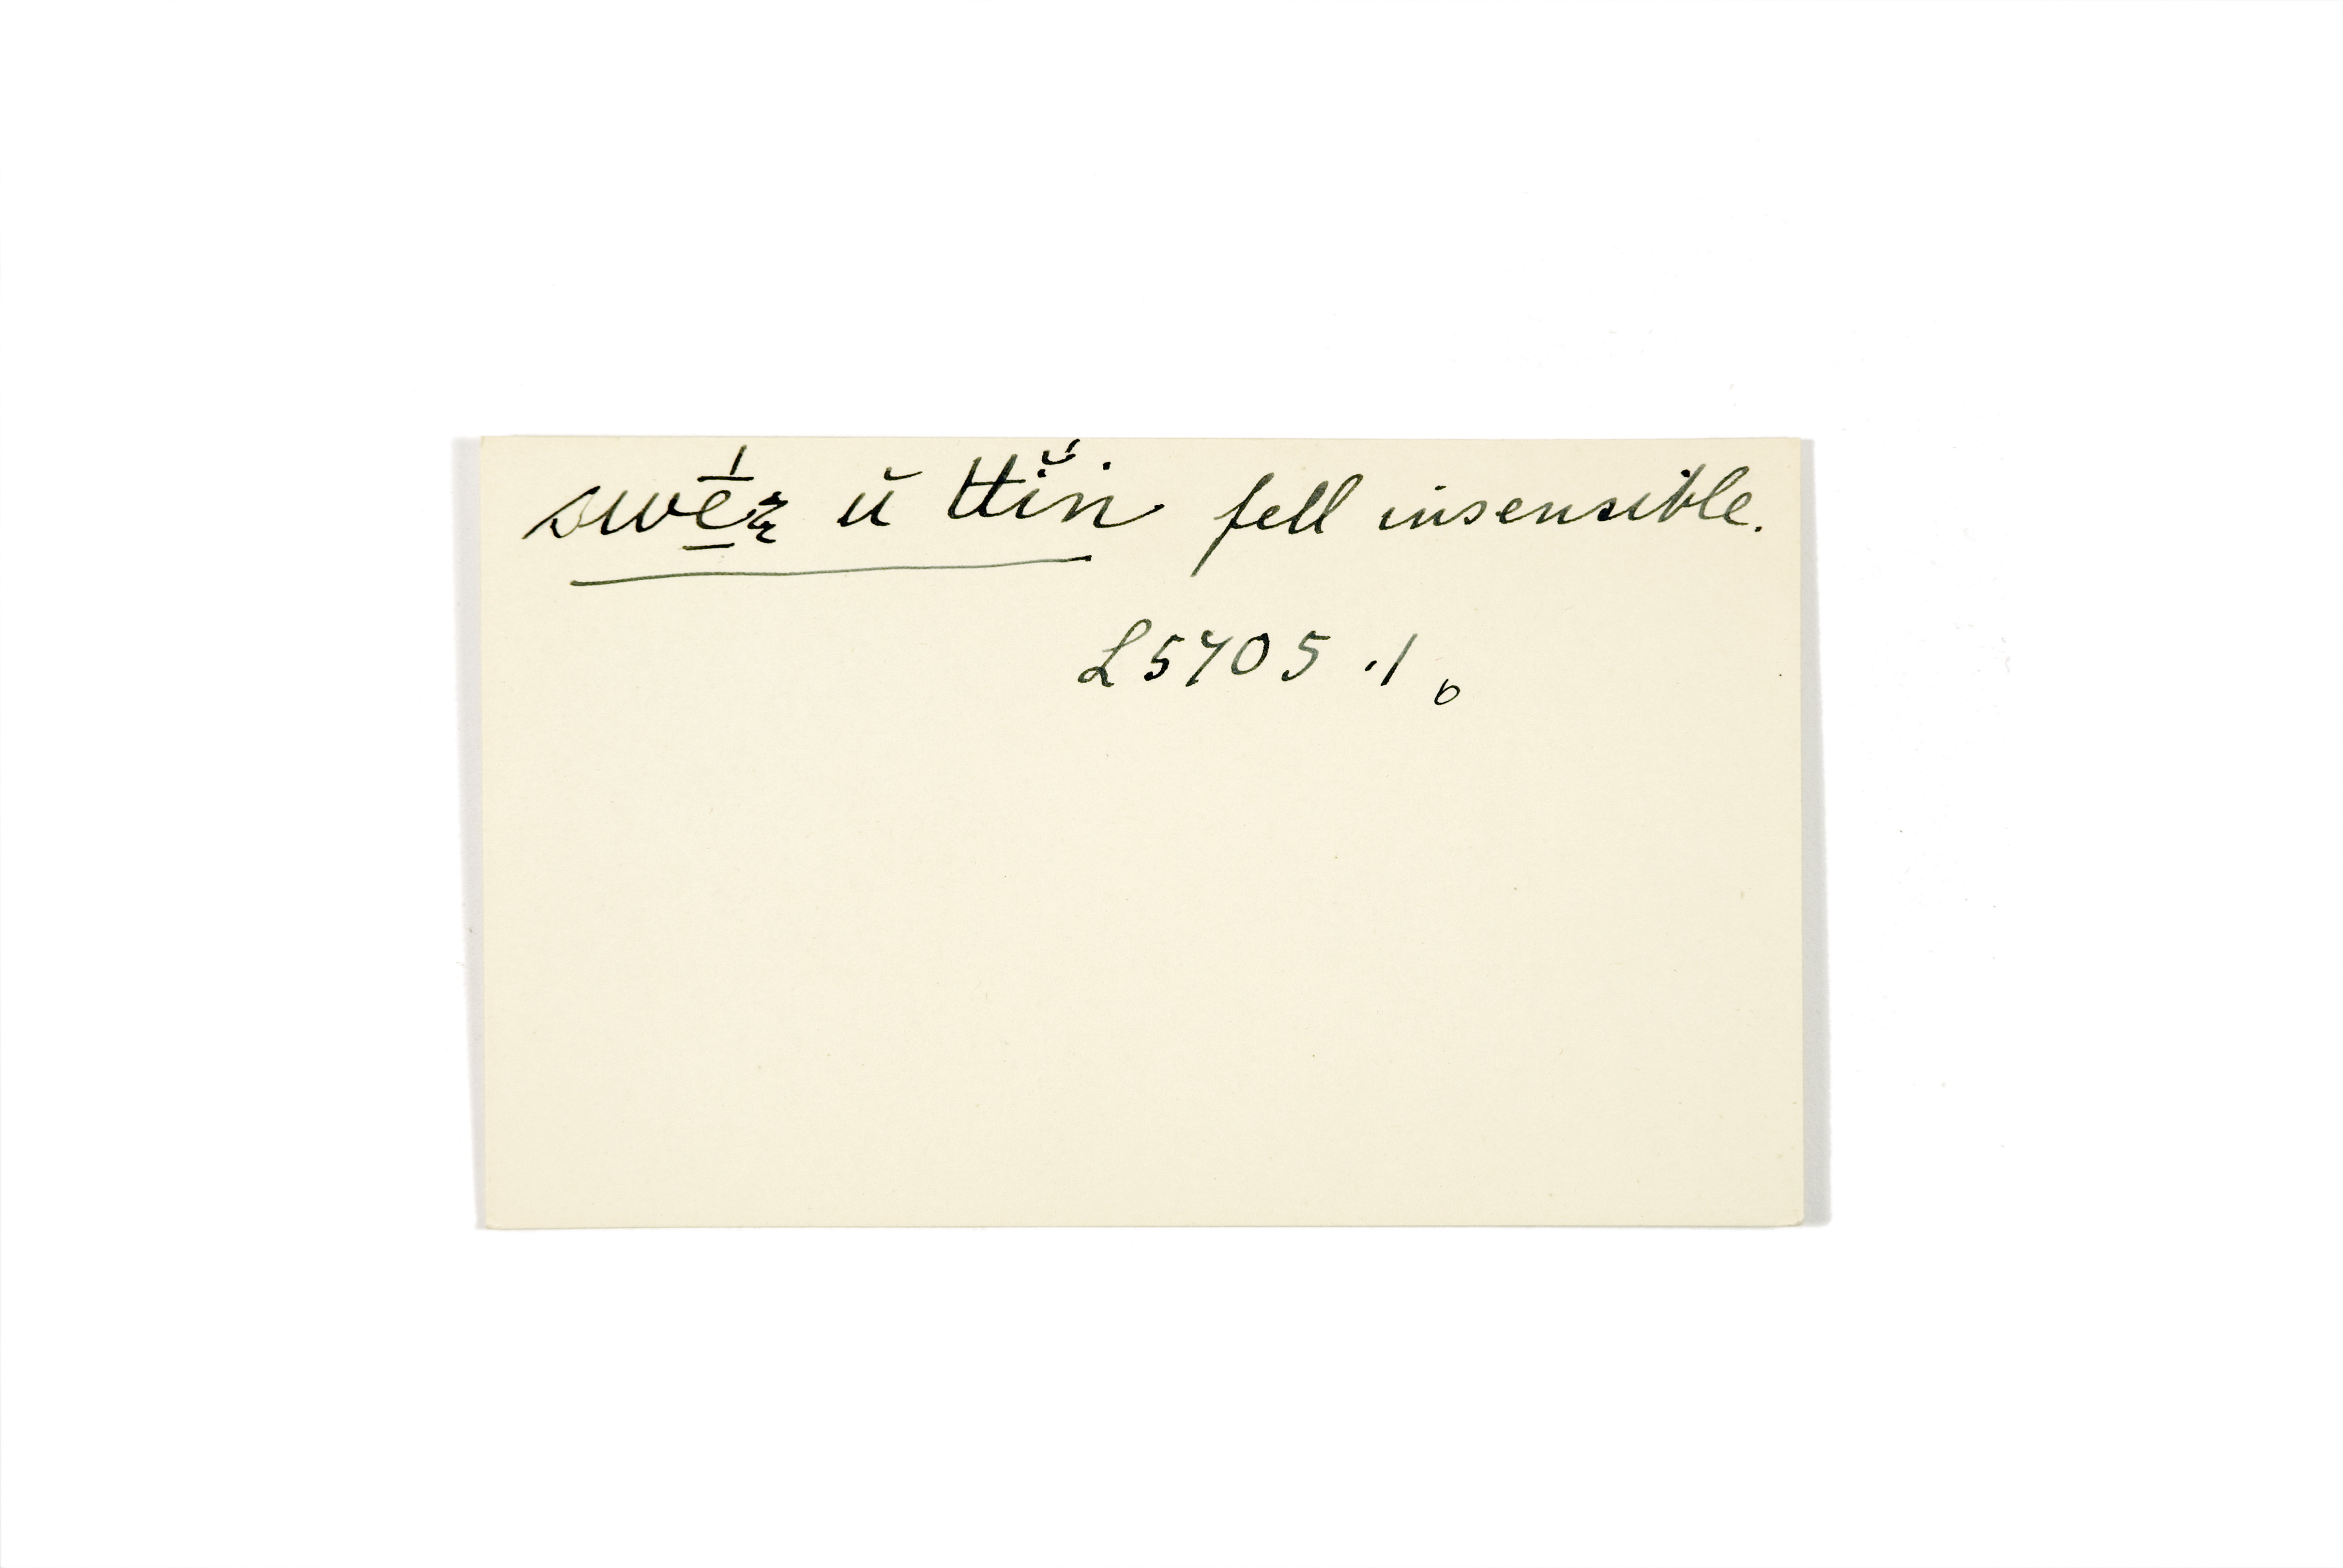 swḗ̱ꝛ ŭ ttĭ́ṅ fell insensible.
L5705 .1 o